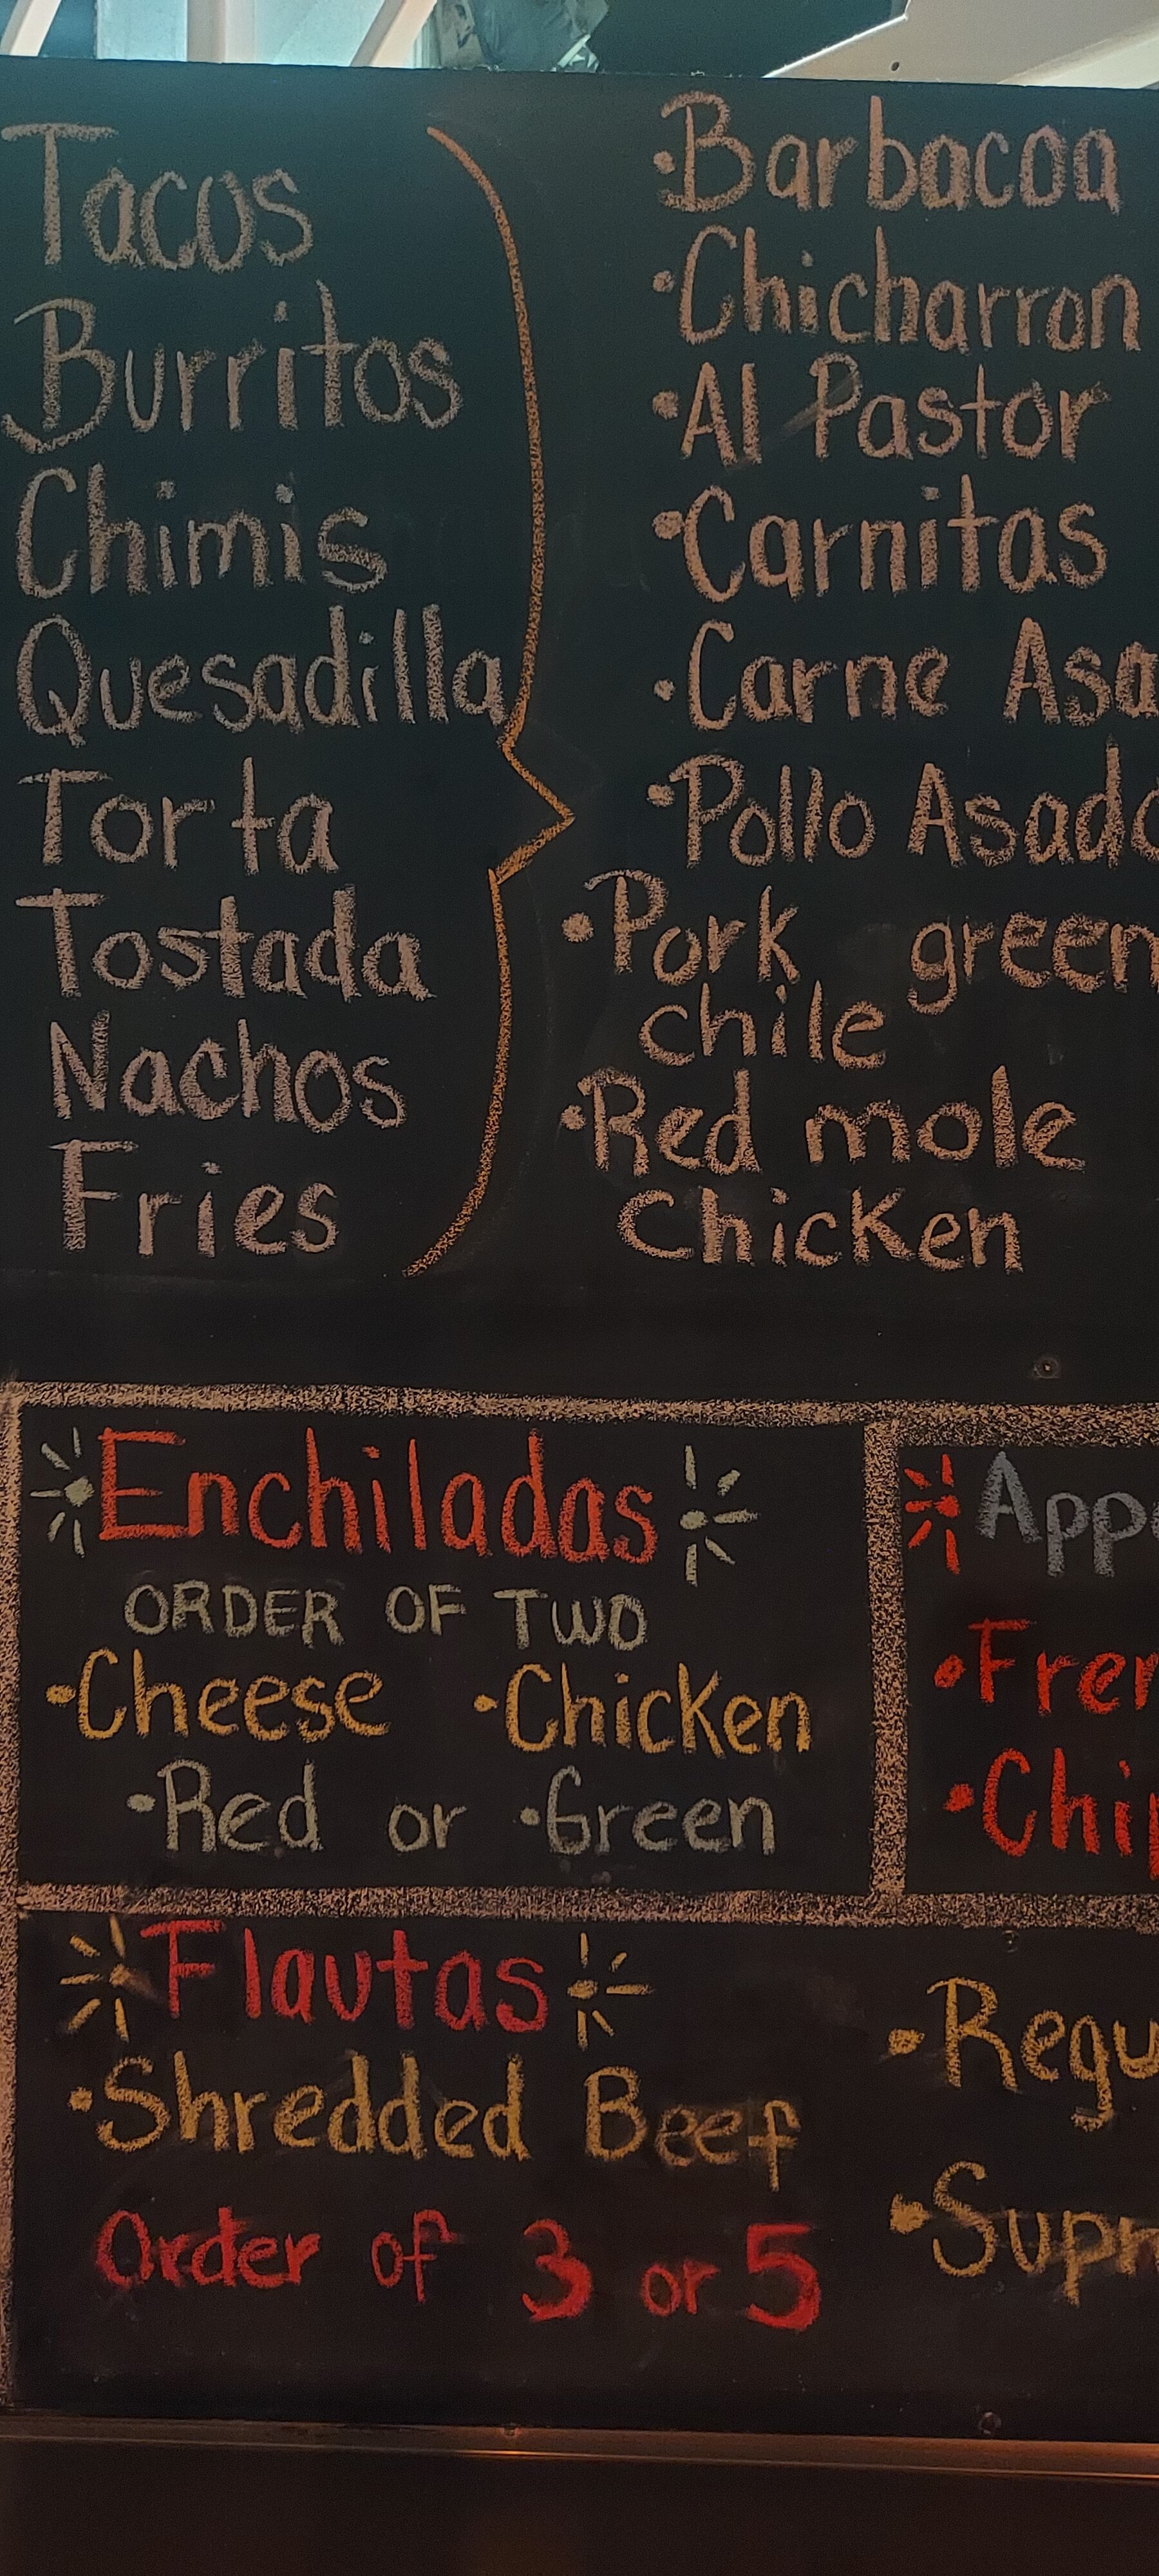 Tacos
Burritos
Chimis
Quesadilla
Torta
Tostada
Nachos
Fries
·Barbacoa
·Chicharron
·Al Pastor
·Carnitas
·Carne Asa
·Pollo Asado
·Pork green
chile
·Red mole
Chicken
Enchiladas
ORDER OF TWO
·Cheese ·Chicken
·Red or ·Green
App
·Fren
·Chip
Flautas
·Shredded Beef
Order of 3 or 5
·Regu
·Supr